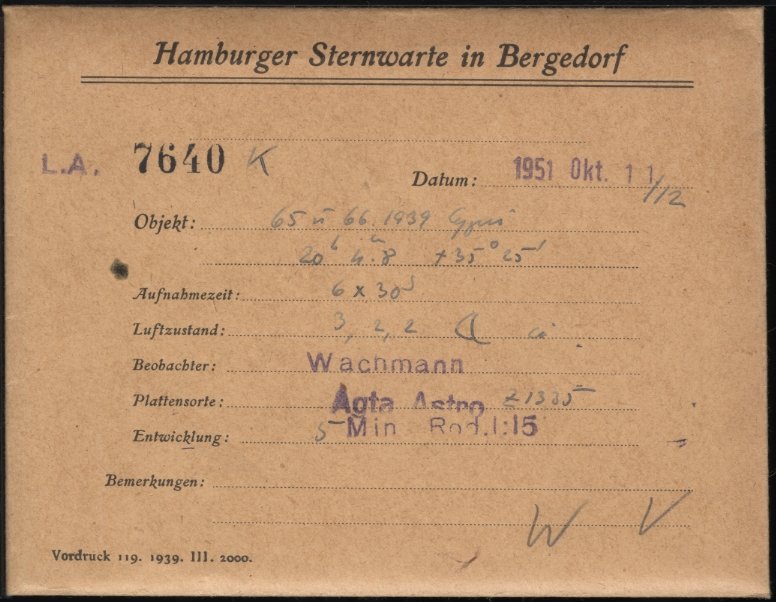 Hamburger Sternwarte in Bergedorf
L.A. 7640 K
Datum: 1951 Okt. 11/12
Objekt: 65 u 66.1939 Cygni
20h 4m.8 +35° 25'
Aufnahmezeit: 6 x 30s
Luftzustand: 3, 2, 2 ci
Beobachter: Wachmann
Plattensorte: Agfa Astro Z1335
Entwicklung: 5 Min Rod.1:15
Bemerkungen:
W V
Vordruck 119. 1939. III. 2000.